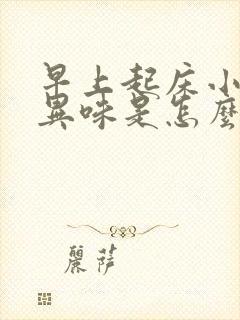 早上起床小
異味是怎麼
麗薩